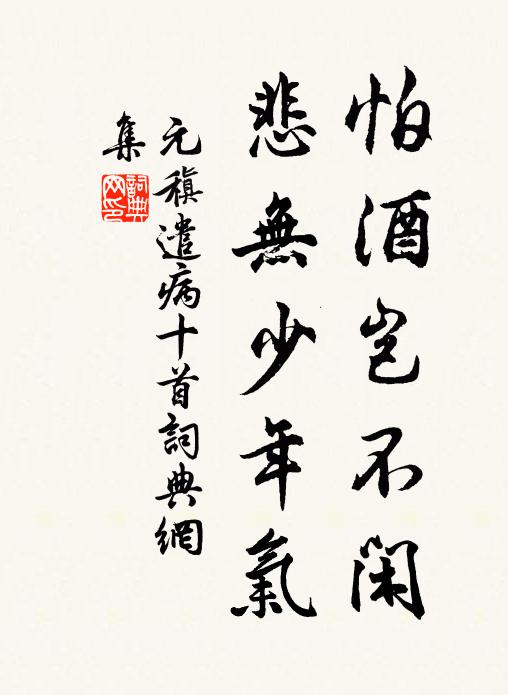 怕酒豈不閑
悲無少年氣
元稹遣病十首詞典網
集
詞典網印